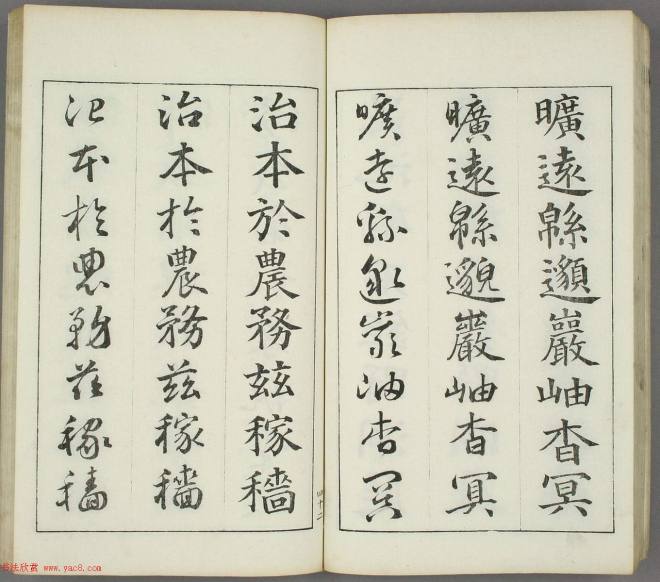 曠遠緜邈巖岫杳冥
曠遠緜邈巖岫杳冥
曠遠緜邈巖岫杳冥
治本於農務茲稼穡
治本於農務茲稼穡
治本於農務茲稼穡
四十二
书法欣赏 www.yac8.com